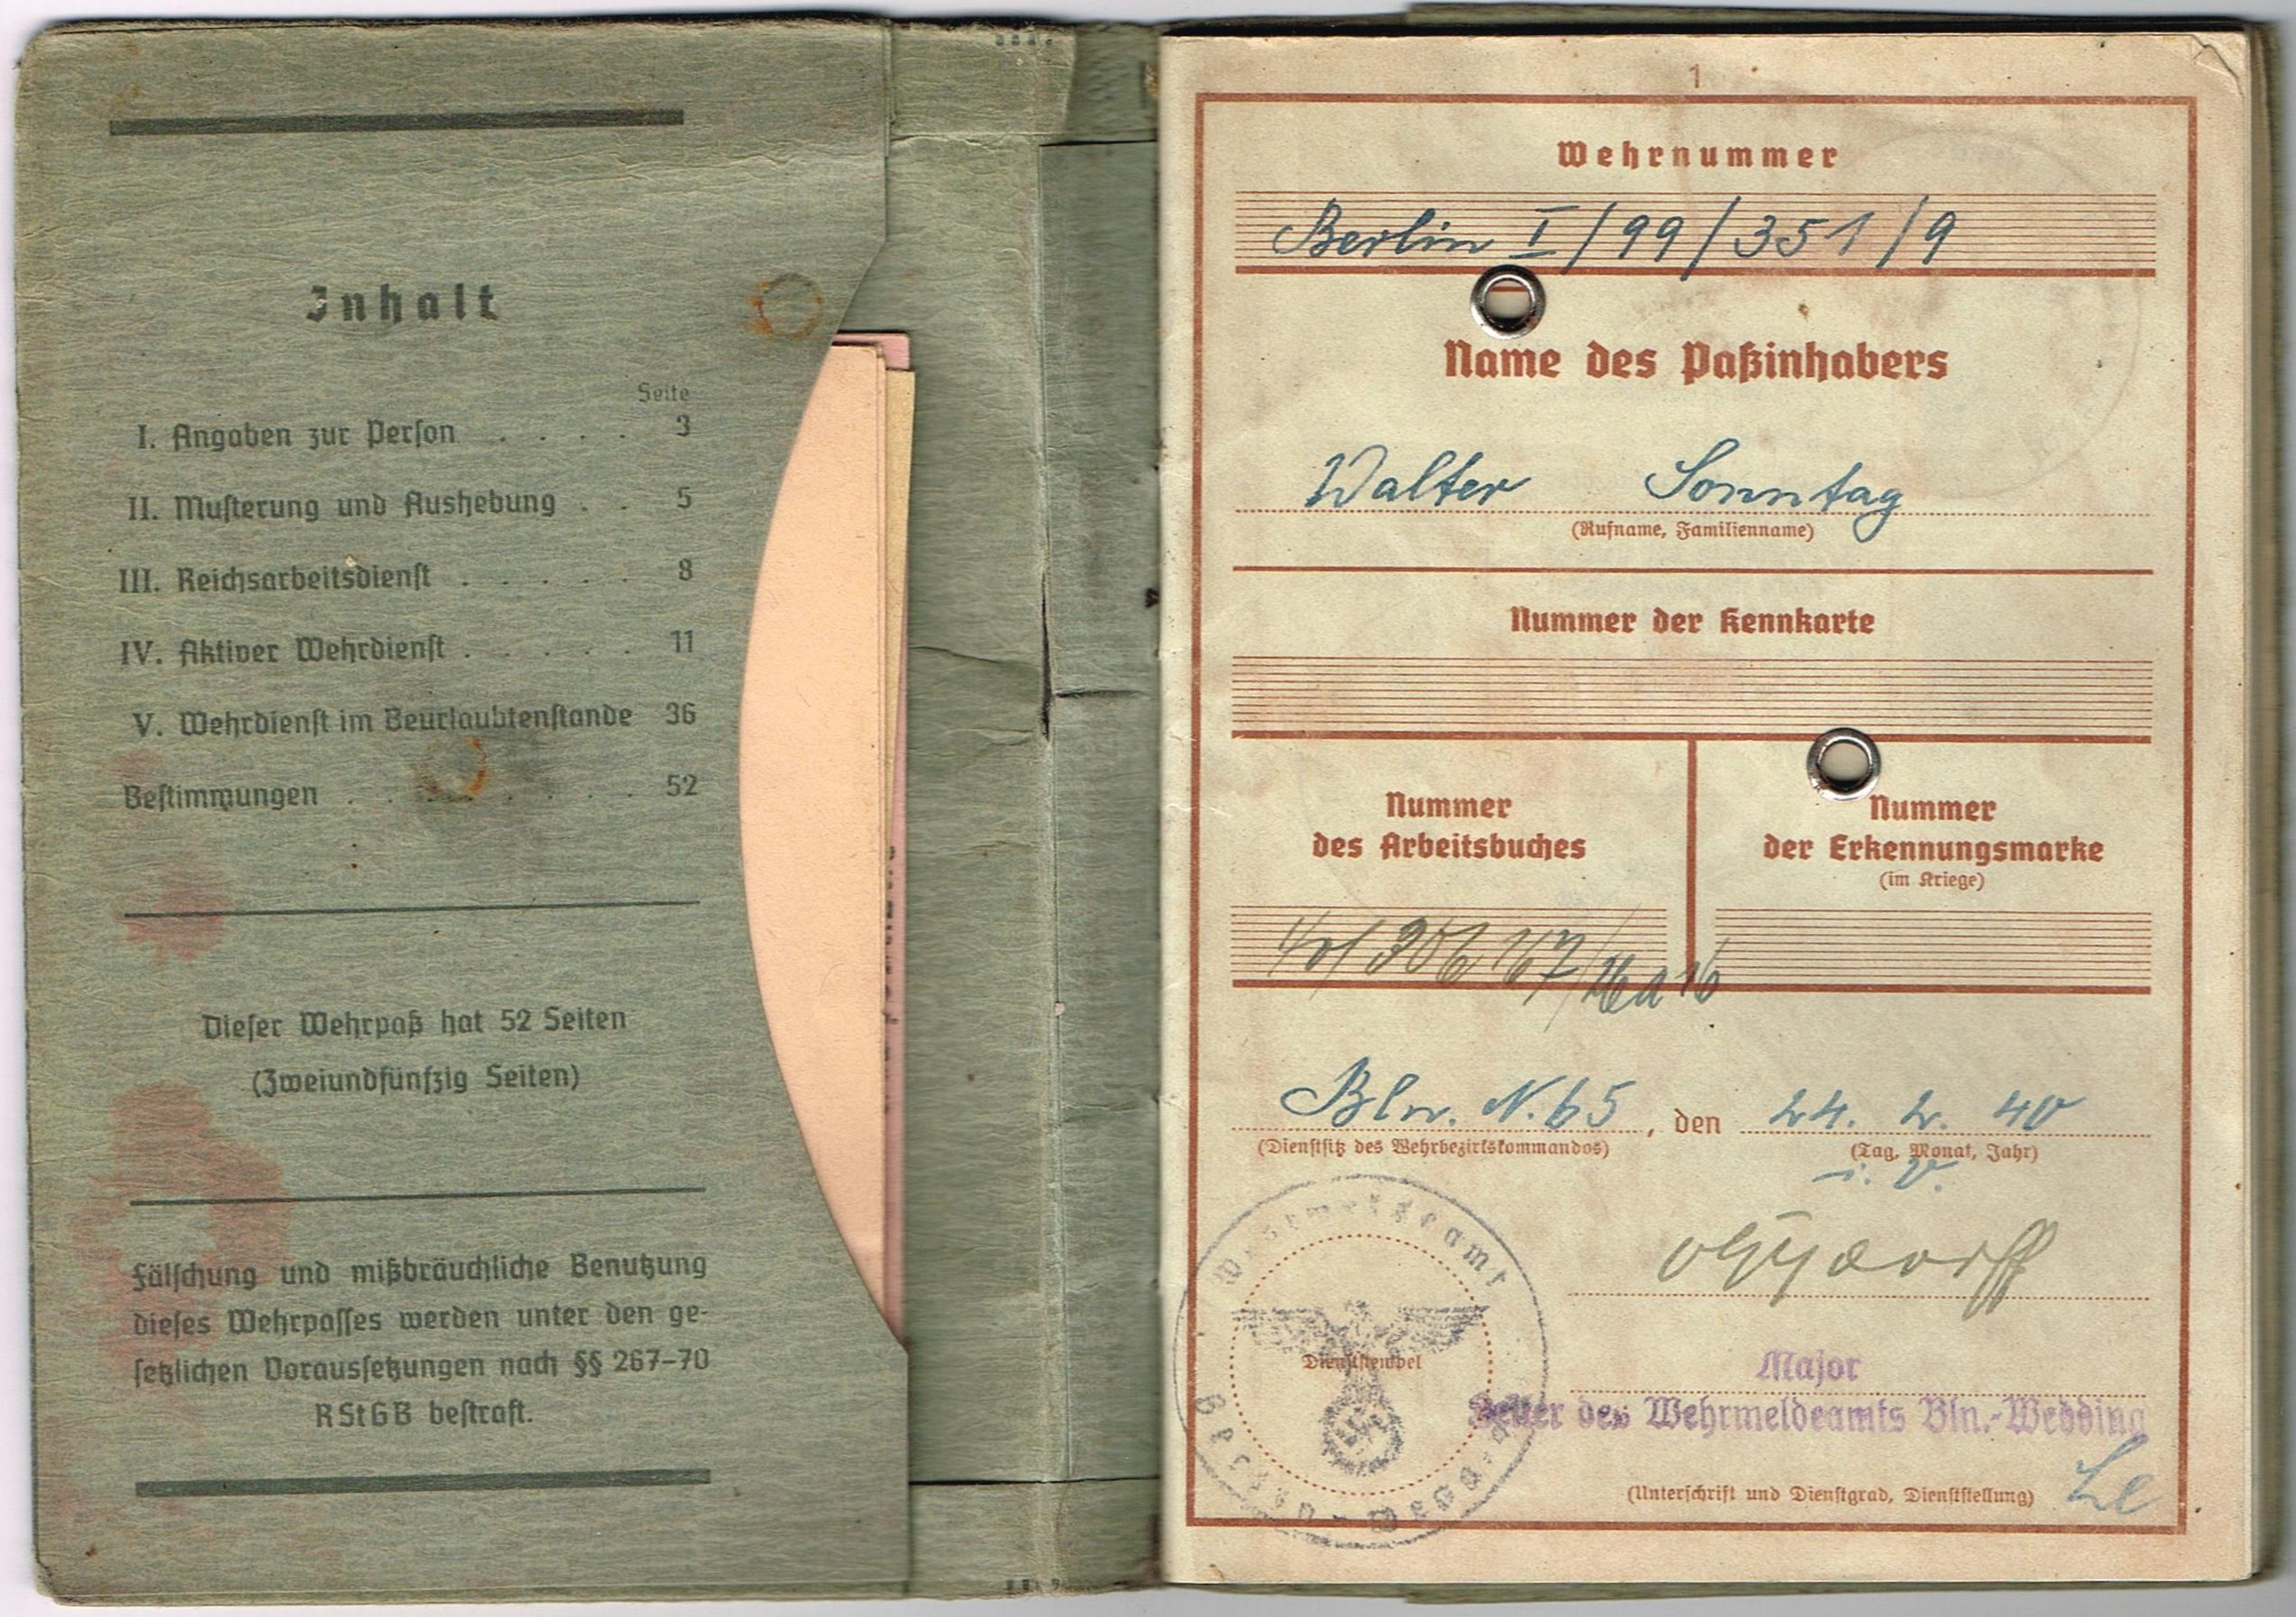 Inhalt
Seite
I. Angaben zur Person . . . . 3
II. Musterung und Aushebung . . 5
III. Reichsarbeitsdienst . . . . . 8
IV. Aktiver Wehrdienst . . . . . 11
V. Wehrdienst im Beurlaubtenstande 36
Bestimmungen . . . . . . 52
Dieser Wehrpaß hat 52 Seiten
(Zweiundfünfzig Seiten)
Fälschung und mißbräuchliche Benutzung
dieses Wehrpasses werden unter den ge-
setzlichen Voraussetzungen nach §§ 267–70
RStGB bestraft.
1
Wehrnummer
Berlin I/99/351/9
Name des Paßinhabers
Walter Sonntag
(Rufname, Familienname)
Nummer der Kennkarte
Nummer
des Arbeitsbuches
Nummer
der Erkennungsmarke
(im Kriege)
Bln. N. 65, den 24. 2. 40
(Dienstsitz des Wehrbezirkskommandos) (Tag, Monat, Jahr)
i. V.
Wehrmeldeamt
Berlin-Wedding
Dienststempel
Major
Leiter des Wehrmeldeamts Bln.-Wedding
(Unterschrift und Dienstgrad, Dienststellung)